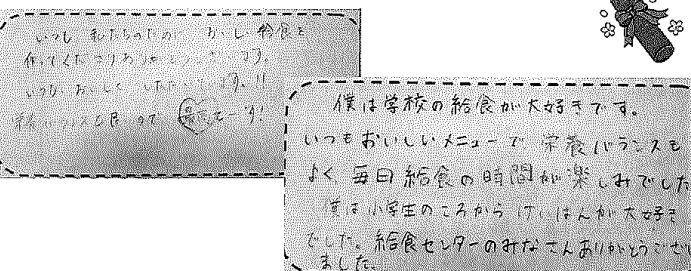 いつも 私たちのため おいしい給食を
作ってくださりありがとうございます。
いつも おいしく いただいています!!
栄養バランスも良 最高でーす!
僕は学校の給食が大好きです。
いつもおいしいメニューで 栄養バランスも
よく 毎日給食の時間が楽しみでした
僕は小学生のころから けいはんが大好き
でした。給食センターのみなさんありがとうござい
ました。